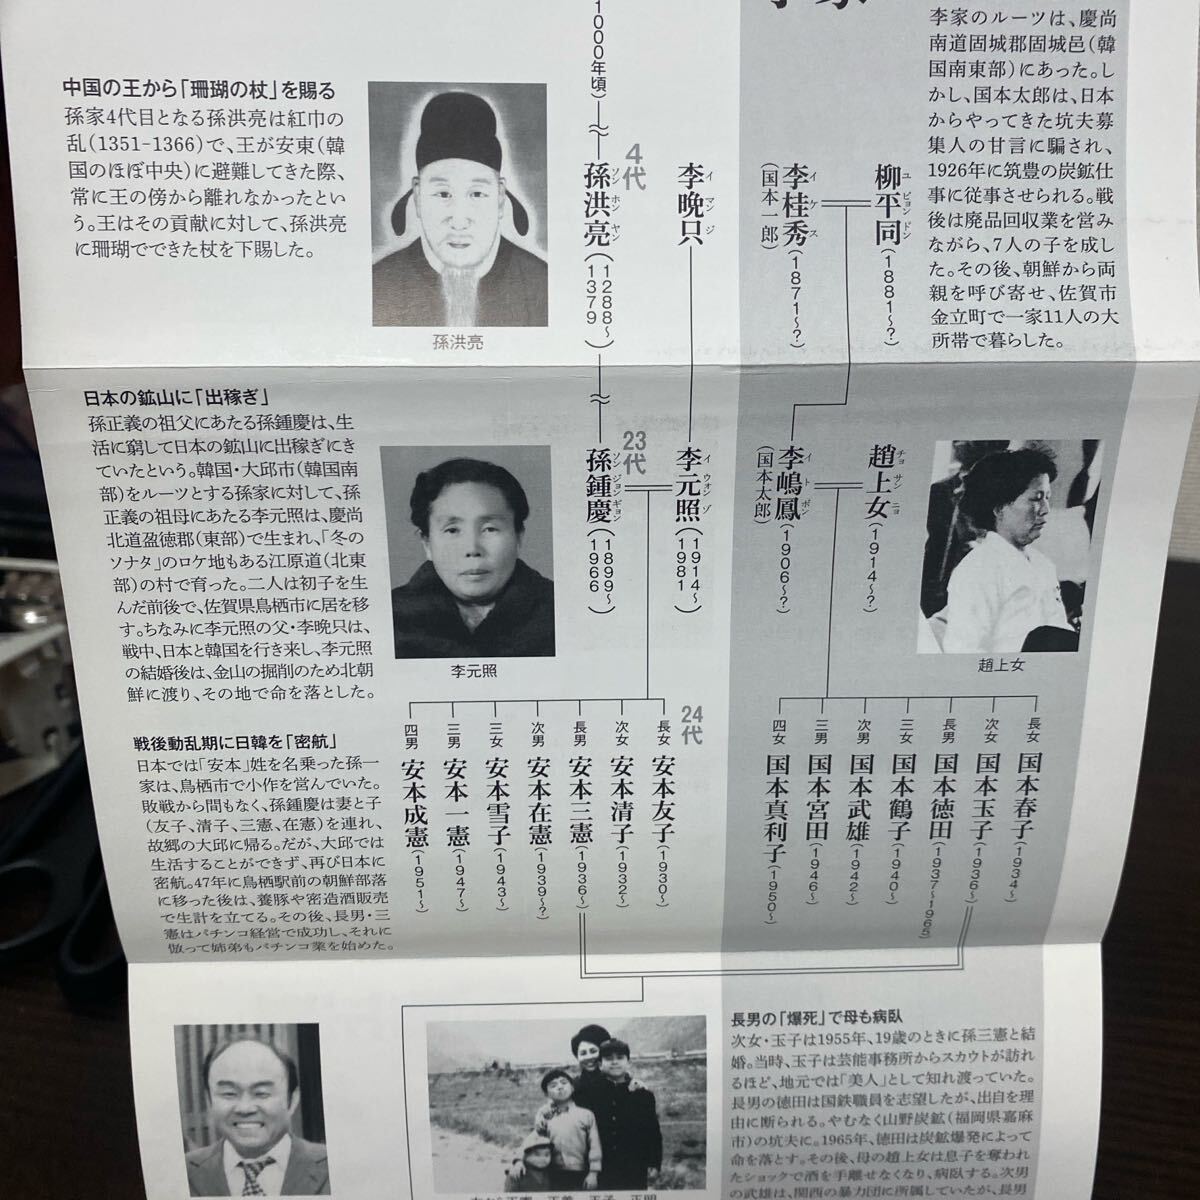 李家のルーツは、慶尚
南道固城郡固城邑(韓
国南東部)にあった。し
かし、国本太郎は、日本
からやってきた坑夫募
集人の甘言に騙され、
1926年に筑豊の炭鉱仕
事に従事させられる。戦
後は廃品回収業を営み
ながら、7人の子を成し
た。その後、朝鮮から両
親を呼び寄せ、佐賀市
金立町で一家11人の大
所帯で暮らした。
1000年頃)
中国の王から「珊瑚の杖」を賜る
孫家4代目となる孫洪亮は紅巾の
乱(1351-1366)で、王が安東(韓
国のほぼ中央)に避難してきた際、
常に王の傍から離れなかったとい
う。王はその貢献に対して、孫洪亮
に珊瑚でできた杖を下賜した。
孫洪亮
4代
孫洪亮(1288〜1379)
ソンホンヤン
李晩只
イマンジ
李桂秀(1871〜?)
イケス
(国本一郎)
柳平同(1881〜?)
ユピョンドン
日本の鉱山に「出稼ぎ」
孫正義の祖父にあたる孫鍾慶は、生
活に窮して日本の鉱山に出稼ぎにき
ていたという。韓国・大邱市(韓国南
部)をルーツとする孫家に対して、孫
正義の祖母にあたる李元照は、慶尚
北道盈徳郡(東部)で生まれ、「冬の
ソナタ」のロケ地もある江原道(北東
部)の村で育った。二人は初子を生
んだ前後で、佐賀県鳥栖市に居を移
す。ちなみに李元照の父・李晩只は、
戦中、日本と韓国を行き来し、李元照
の結婚後は、金山の掘削のため北朝
鮮に渡り、その地で命を落とした。
李元照
23代
孫鍾慶(1899〜1966)
ソンジョンギョン
李元照(1914〜1981)
イウォンゾ
李嶋鳳(1906〜?)
イトボン
(国本太郎)
趙上女(1914〜?)
チョサンニョ
趙上女
戦後動乱期に日韓を「密航」
日本では「安本」姓を名乗った孫一
家は、鳥栖市で小作を営んでいた。
敗戦から間もなく、孫鍾慶は妻と子
(友子、清子、三憲、在憲)を連れ、
故郷の大邱に帰る。だが、大邱では
生活することができず、再び日本に
密航。47年に鳥栖駅前の朝鮮部落
に移った後は、養豚や密造酒販売
で生計を立てる。その後、長男・三
憲はパチンコ経営で成功し、それに
倣って姉弟もパチンコ業を始めた。
24代
長女 安本友子(1930〜)
次女 安本清子(1932〜)
長男 安本三憲(1936〜)
次男 安本在憲(1939〜?)
三女 安本雪子(1943〜)
三男 安本一憲(1947〜)
四男 安本成憲(1951〜)
長女 国本春子(1934〜)
次女 国本玉子(1936〜)
長男 国本徳田(1937〜1965)
三女 国本鶴子(1940〜)
次男 国本武雄(1942〜)
三男 国本宮田(1946〜)
四女 国本真利子(1950〜)
長男の「爆死」で母も病臥
次女・玉子は1955年、19歳のときに孫三憲と結
婚。当時、玉子は芸能事務所からスカウトが訪れ
るほど、地元では「美人」として知れ渡っていた。
長男の徳田は国鉄職員を志望したが、出自を理
由に断られる。やむなく山野炭鉱(福岡県嘉麻
市)の坑夫に。1965年、徳田は炭鉱爆発によって
命を落とす。その後、母の趙上女は息子を奪われ
たショックで酒を手離せなくなり、病臥する。次男
の武雄は、関西の暴力団に所属していたが、長男